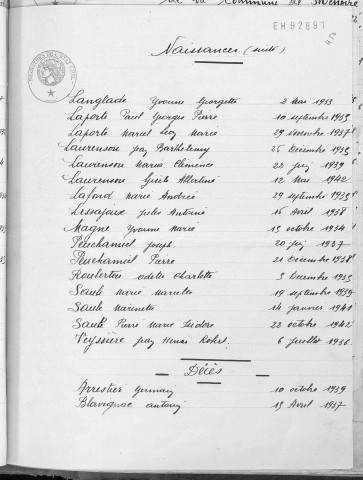 de la Commune de
EH 92891
Naissances (suite)
Langlade Yvonne Georgette 2 mai 1933
Laporte Paul Georges Pierre 10 septembre 1935
Laporte Marcel Leon Marie 29 novembre 1937
Laurenson Jean Barthelemy 25 Décembre 1935
Laurenson Maria Clémence 22 juin 1939
Laurenson Albertine 12 Mai 1942
Lafond Marie Andrée 29 septembre 1935
Lissajoux Jules Antoine 16 Avril 1938
Magne Yvonne Marie 15 octobre 1934
Peuchamiel Joseph 20 juin 1937
Peuchamiel Pierre 21 Décembre 1938
Odette Charlotte 3 Décembre 1935
Saule Marie 19 septembre 1939
Saule Marinette 14 janvier 1941
Saule Pierre Marie Isidore 22 octobre 1942
Veyssière Jean Henri Robert 6 juillet 1936
Décès
Arrestier Germain 10 octobre 1939
Blavignac Antonin 15 Avril 1937